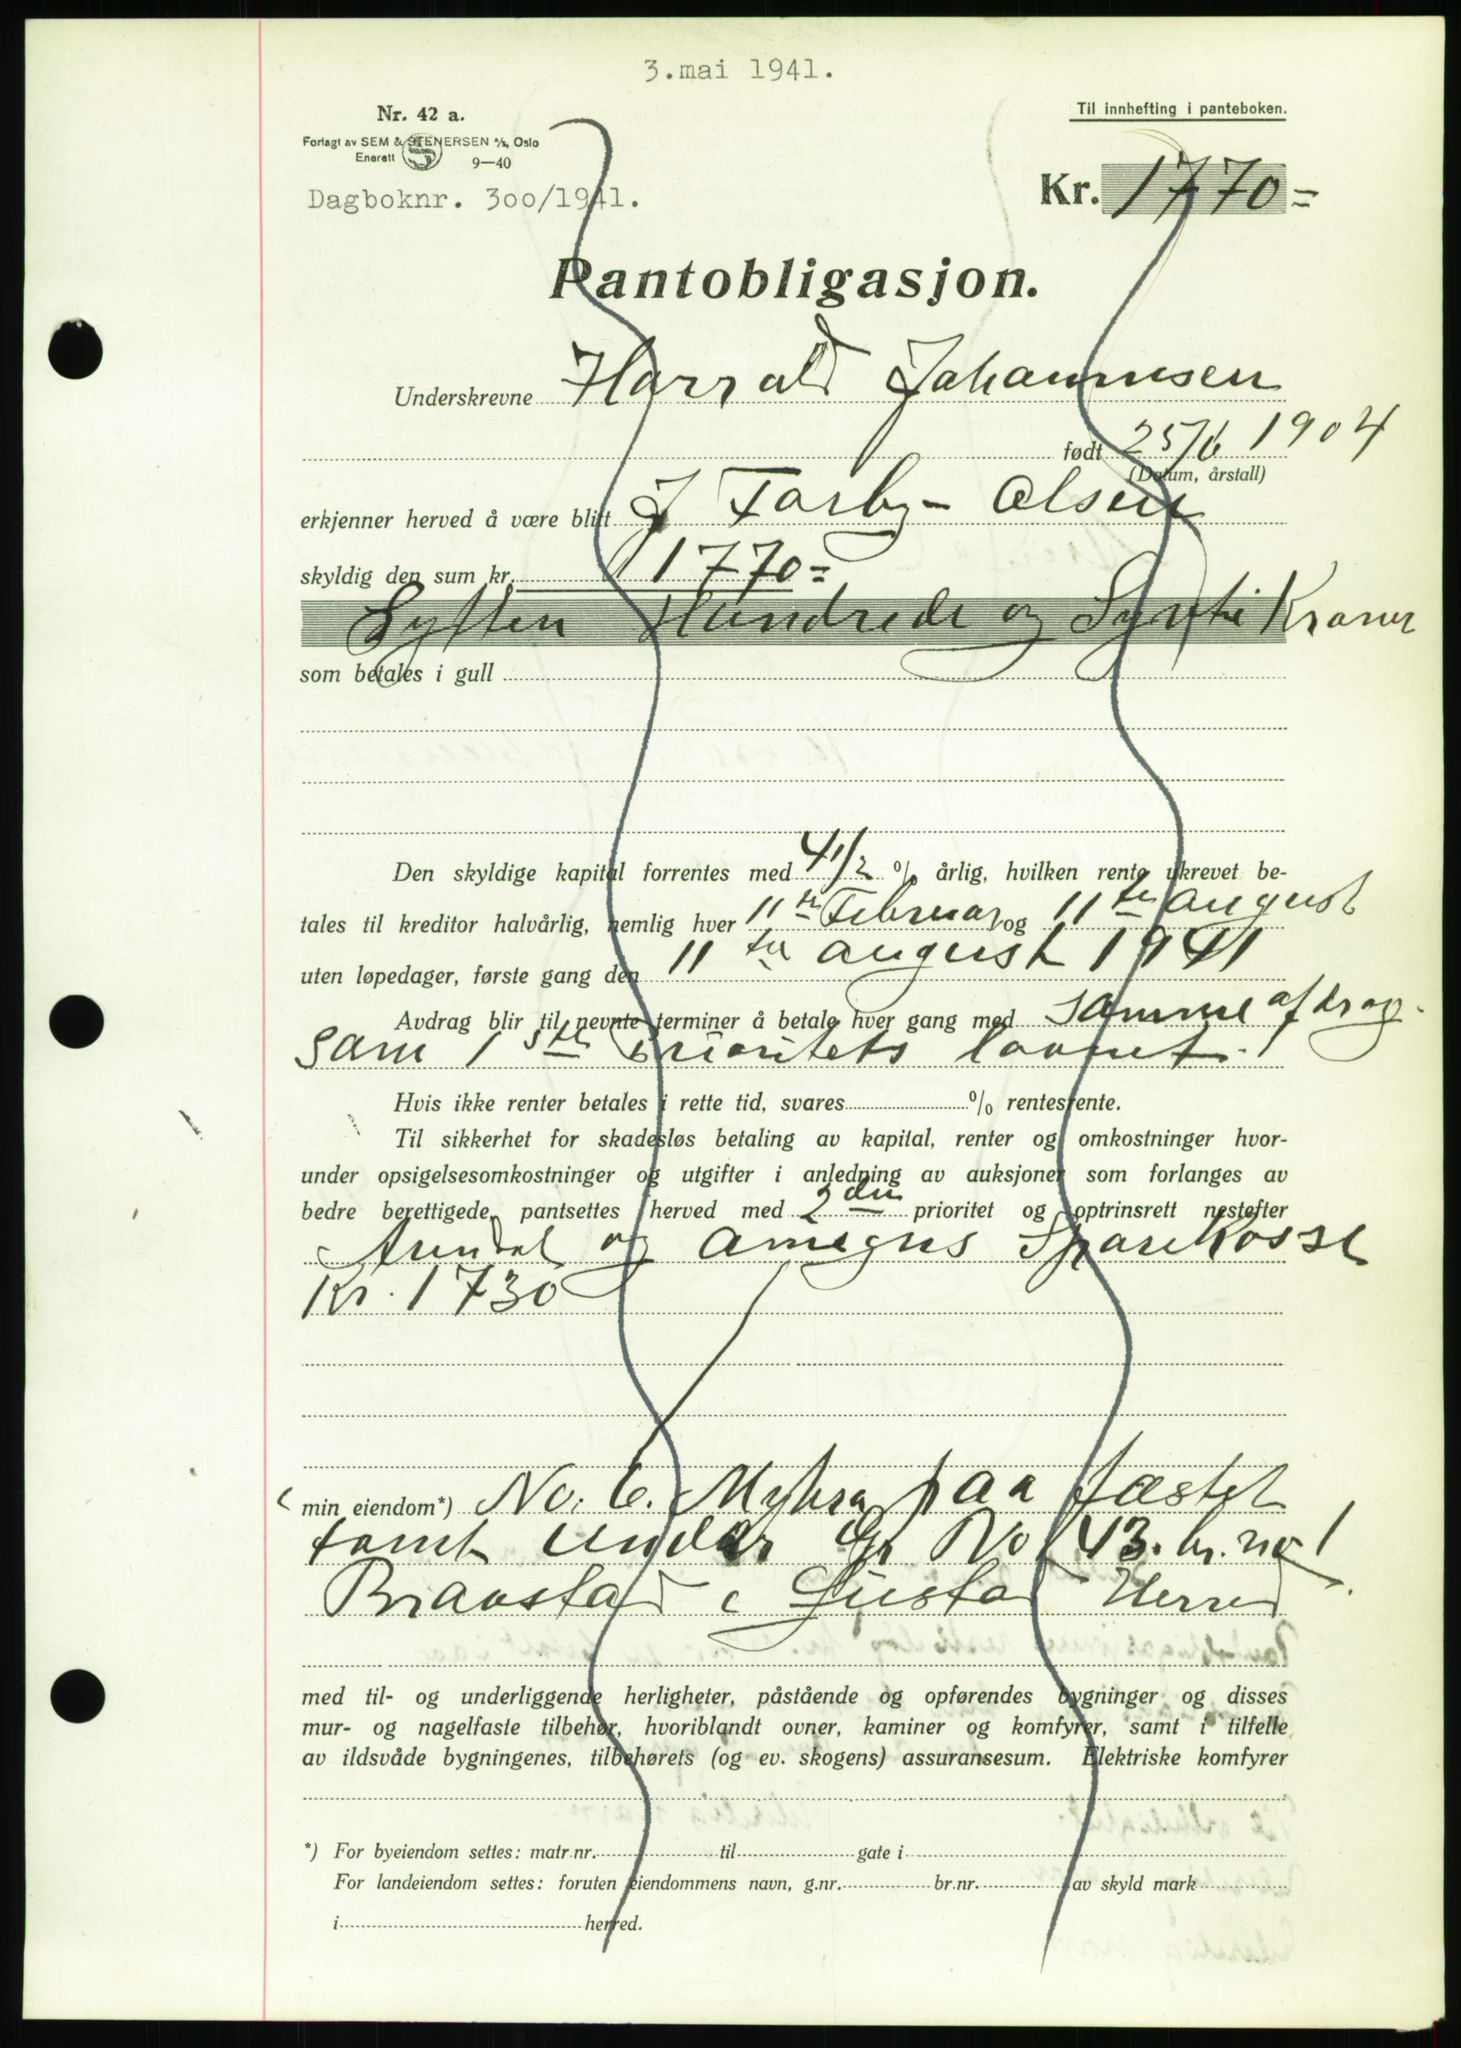 3.mai 1941.
Nr. 42 a.
Til innhefting i panteboken.
Forlagt av SEM & STENERSEN A/S, Oslo
Enerett 9—40
Kr. 1770=
Dagboknr. 300/1941.
Pantobligasjon.
Underskrevne Harrald Johannesen
født 25/6 1904
(Datum, årstall)
erkjenner herved å være blitt J Tarby- Olsen
skyldig den sum kr. 1770=
Sytten Hundrede og Sytti Kroner
som betales i gull
Den skyldige kapital forrentes med 4 1/2 % årlig, hvilken rente ukrevet be-
tales til kreditor halvårlig, nemlig hver 11te Februar og 11te august
uten løpedager, første gang den 11te august 1941
Avdrag blir til nevnte terminer å betale hver gang med samme afdrag
som 1ste prioritets laanet.
Hvis ikke renter betales i rette tid, svares % rentesrente.
Til sikkerhet for skadesløs betaling av kapital, renter og omkostninger hvor-
under opsigelsesomkostninger og utgifter i anledning av auksjoner som forlanges av
bedre berettigede, pantsettes herved med 2den prioritet og optrinsrett nestefter
Arendal og omegns Sparekasse
Kr. 1730
min eiendom*) No. 6. Myhra paa fæstet
tomt under Gr No 43. br. no 1
Bravstad i Gjustad Herred
med til- og underliggende herligheter, påstående og opførendes bygninger og disses
mur- og nagelfaste tilbehør, hvoriblandt ovner, kaminer og komfyrer, samt i tilfelle
av ildsvåde bygningenes, tilbehørets (og ev. skogens) assuransesum. Elektriske komfyrer
*) For byeiendom settes: matr.nr. til gate i
For landeiendom settes: foruten eiendommens navn, g.nr. br.nr. av skyld mark
i herred.